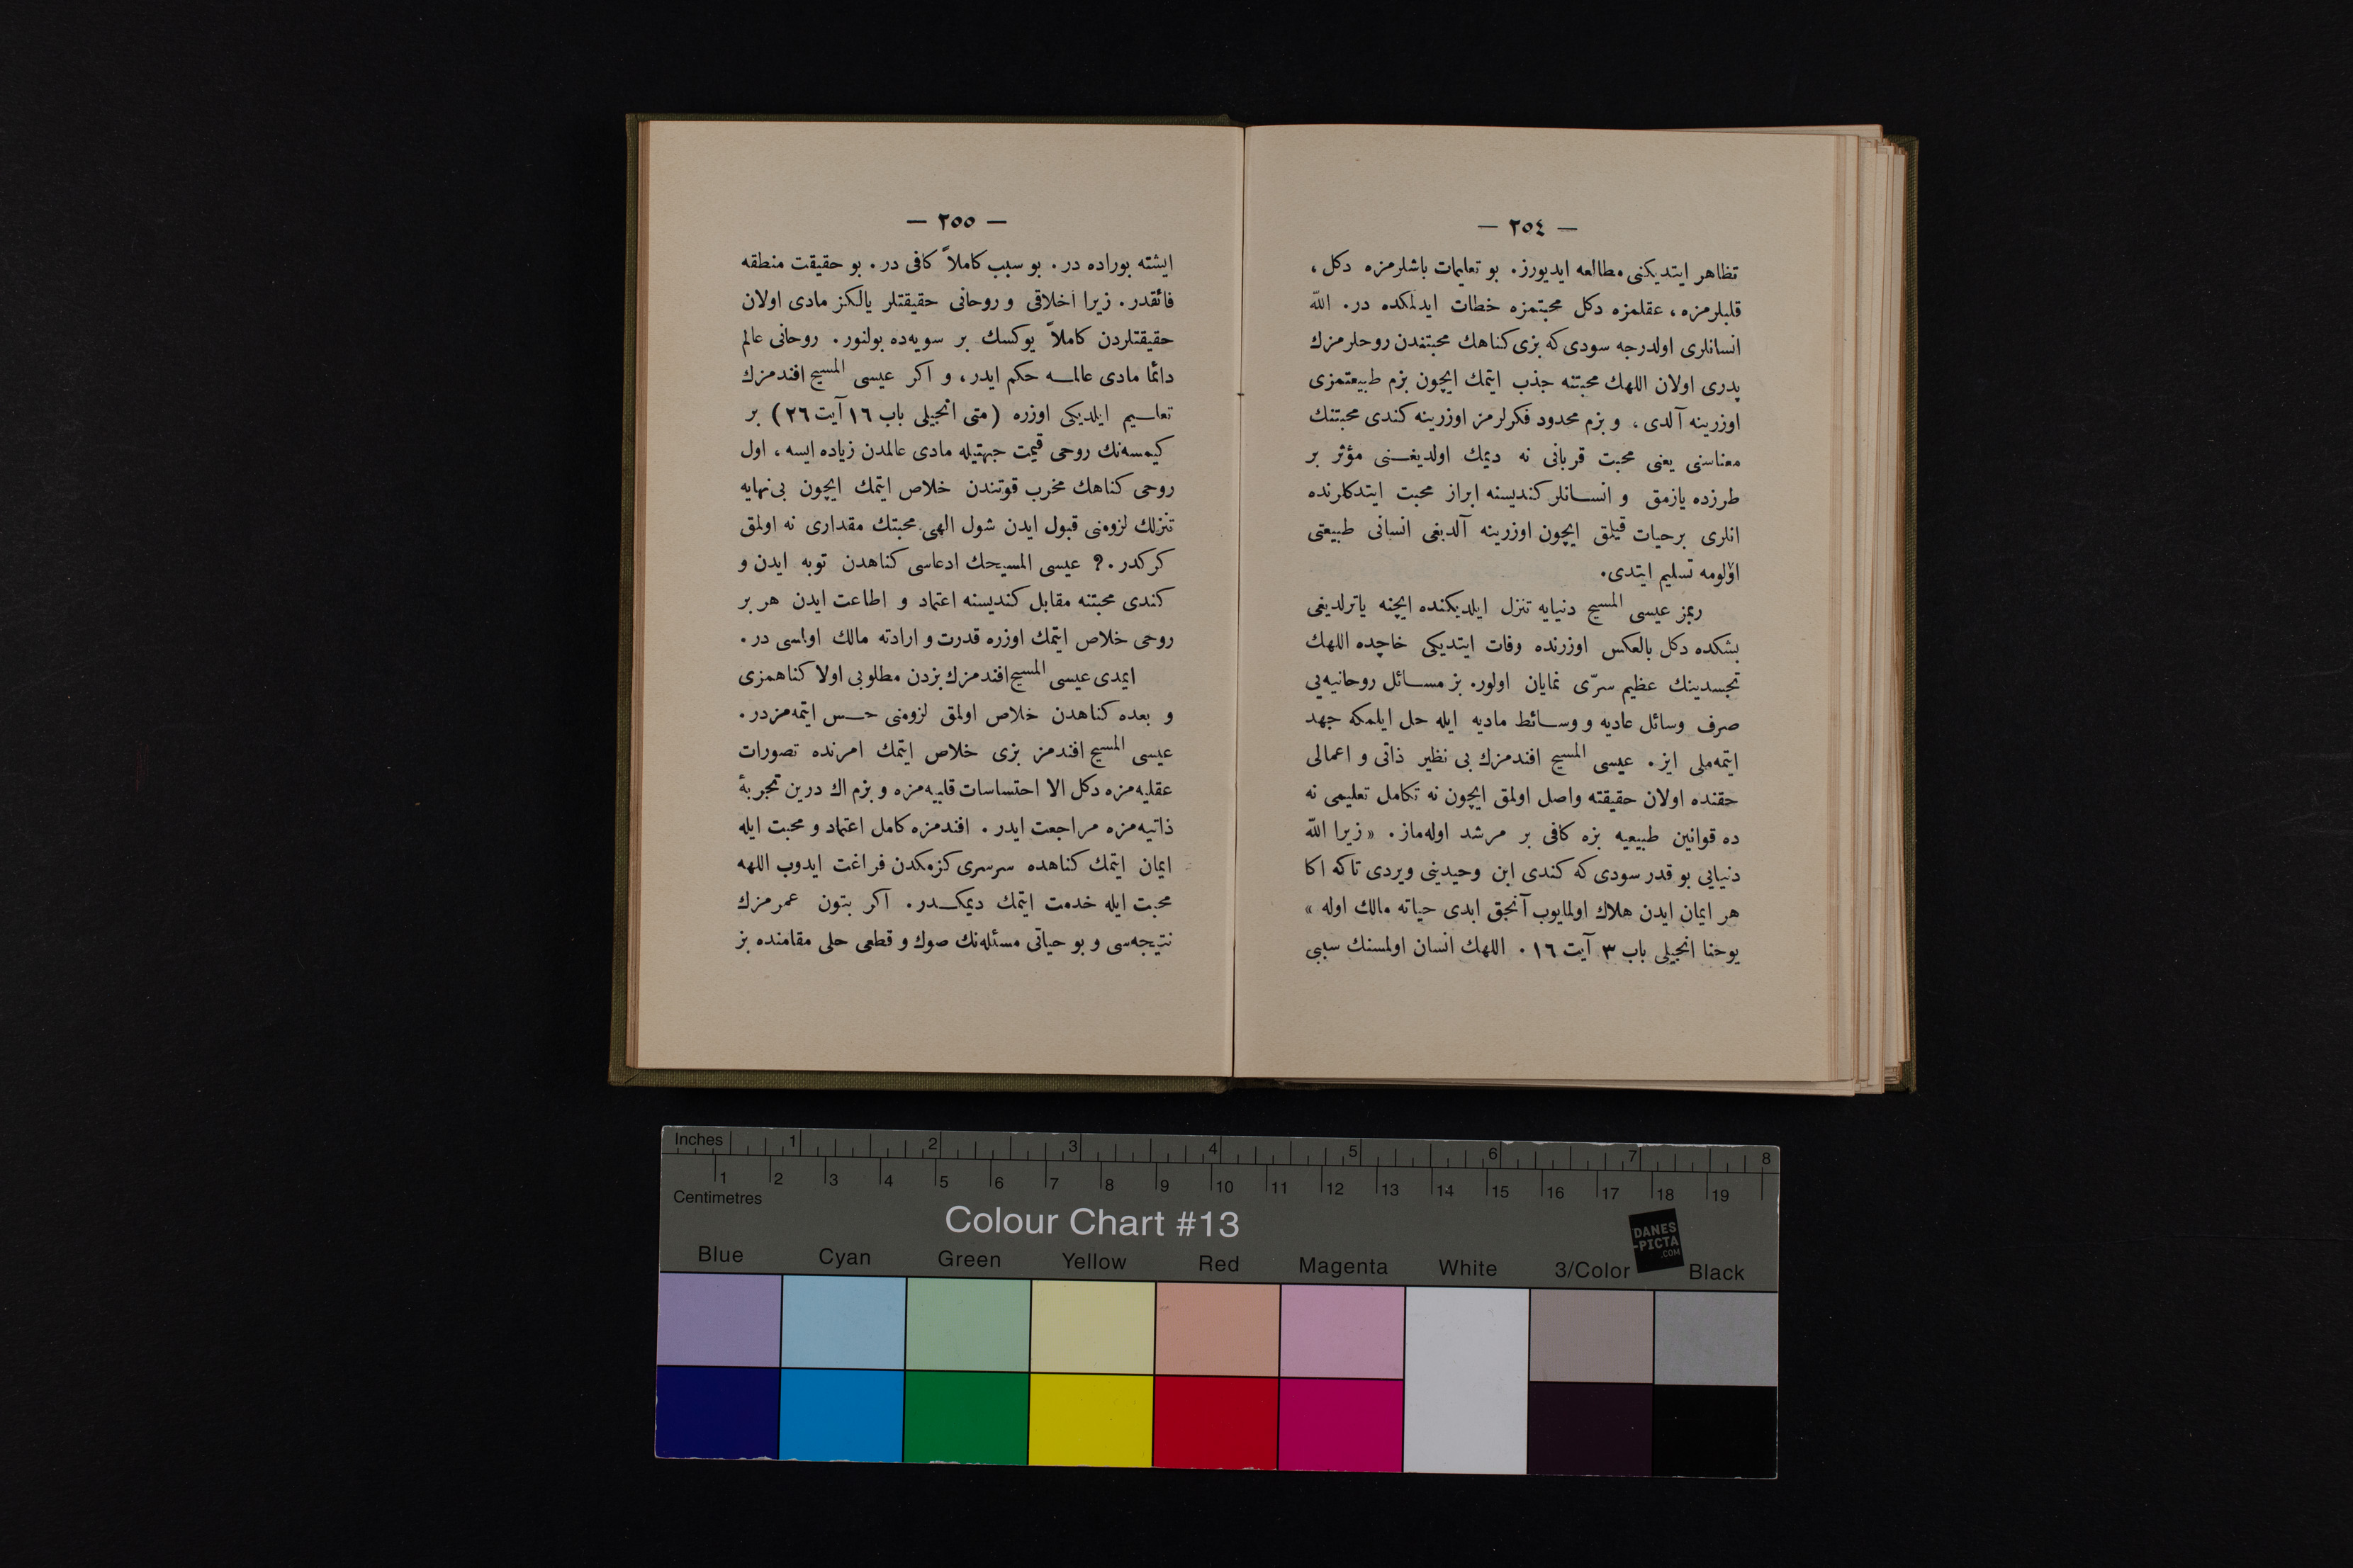 — ٢٥٤ —
تظاهر ایتدیكنی مطالعه ایدیورز. بو تعلیمات باشلرمزه دكل،
قلبلرمزه، عقلمزه دكل محبتمزه خطاب ایدلمكده در. الله
انسانلری اولدرجه سودی كه بزی كناهك محبتندن روحلرمزك
پدری اولان اللهك محبتنه جذب ایتمك ایچون بزم طبیعتمزی
اوزرینه آلدی، و بزم محدود فكرلرمز اوزرینه كندی محبتنك
معناسنی یعنی محبت قربانی نه دیمك اولدیغنی مؤثر بر
طرزده یازمق و انسانلر كندیسنه ابراز محبت ایتدكلرنده
انلری برحیات قیلمق ایچون اوزرینه آلدیغی انسانی طبیعتی
اؤلومه تسلیم ایتدی.
ربمز عیسی المسیح دنیایه تنزل ایلدیكنده ایچنه یاترلدیغی
بشكده دكل بالعكس اوزرنده وفات ایتدیكی خاچده اللهك
تجسدینك عظیم سرّی نمایان اولور. بز مسائل روحانیه‌یی
صرف وسائل عادیه و وسائط مادیه ایله حل ایلمكه جهد
ایتمه‌ملی ایز. عیسی المسیح افندمزك بی نظیر ذاتی و اعمالی
حقنده اولان حقیقته واصل اولمق ایچون نه تكامل تعلیمی نه
ده قوانین طبیعیه بزه كافی بر مرشد اوله‌ماز. « زیرا الله
دنیایی بو قدر سودی كه كندی ابن وحیدینی ویردی تاكه اكا
هر ایمان ایدن هلاك اولمایوب آنجق ابدی حیاته مالك اوله »
یوحنا انجیلی باب ٣ آیت ١٦. اللهك انسان اولمسنك سببی
— ٢٥٥ —
ایشته بوراده در. بو سبب كاملاً كافی در. بو حقیقت منطقه
فائقدر. زیرا اخلاقی و روحانی حقیقتلر یالكز مادی اولان
حقیقتلردن كاملاً یوكسك بر سویه‌ده بولنور. روحانی عالم
دائما مادی عالمـه حكم ایدر، و اكر عیسی المسیح افندمزك
تعلـیم ایلدیكی اوزره (متی انجیلی باب ١٦ آیت ٢٦) بر
كیمسه‌نك روحی قیمت جهتیله مادی عالمدن زیاده ایسه، اول
روحی كناهك مخرب قوتندن خلاص ایتمك ایچون بی‌نهایه
تنزلك لزومنی قبول ایدن شول الهی محبتك مقداری نه اولمق
كركدر.? عیسی المسیحك ادعاسی كناهدن توبه ایدن و
كندی محبتنه مقابل كندیسنه اعتماد و اطاعت ایدن هر بر
روحی خلاص ایتمك اوزره قدرت و ارادته مالك اولمسی در.
ایمدی عیسی المسیح افندمزك بزدن مطلوبی اولا كناهمزی
و بعده كناهدن خلاص اولمق لزومنی حس ایتمه‌مزدر.
عیسی المسیح افندمز بزی خلاص ایتمك امرنده تصورات
عقلیه‌مزه دكل الا احتساسات قلبیه‌مزه و بزم اك درین تجربۀ
ذاتیه‌مزه مراجعت ایدر. افندمزه كامل اعتماد و محبت ایله
ایمان ایتمك كناهده سرسری كزمكدن فراغت ایدوب اللهه
محبت ایله خدمت ایتمك دیمكـدر. اكر بتون عمرمزك
نتیجه‌سی و بو حیاتی مسئله‌نك صوك و قطعی حلی مقامنده بز
Inches 1 2 3 4 5 6 7 8
1 2 3 4 5 6 7 8 9 10 11 12 13 14 15 16 17 18 19
Centimetres
Colour Chart #13
DANES
-PICTA
.COM
Blue Cyan Green Yellow Red Magenta White 3/Color Black